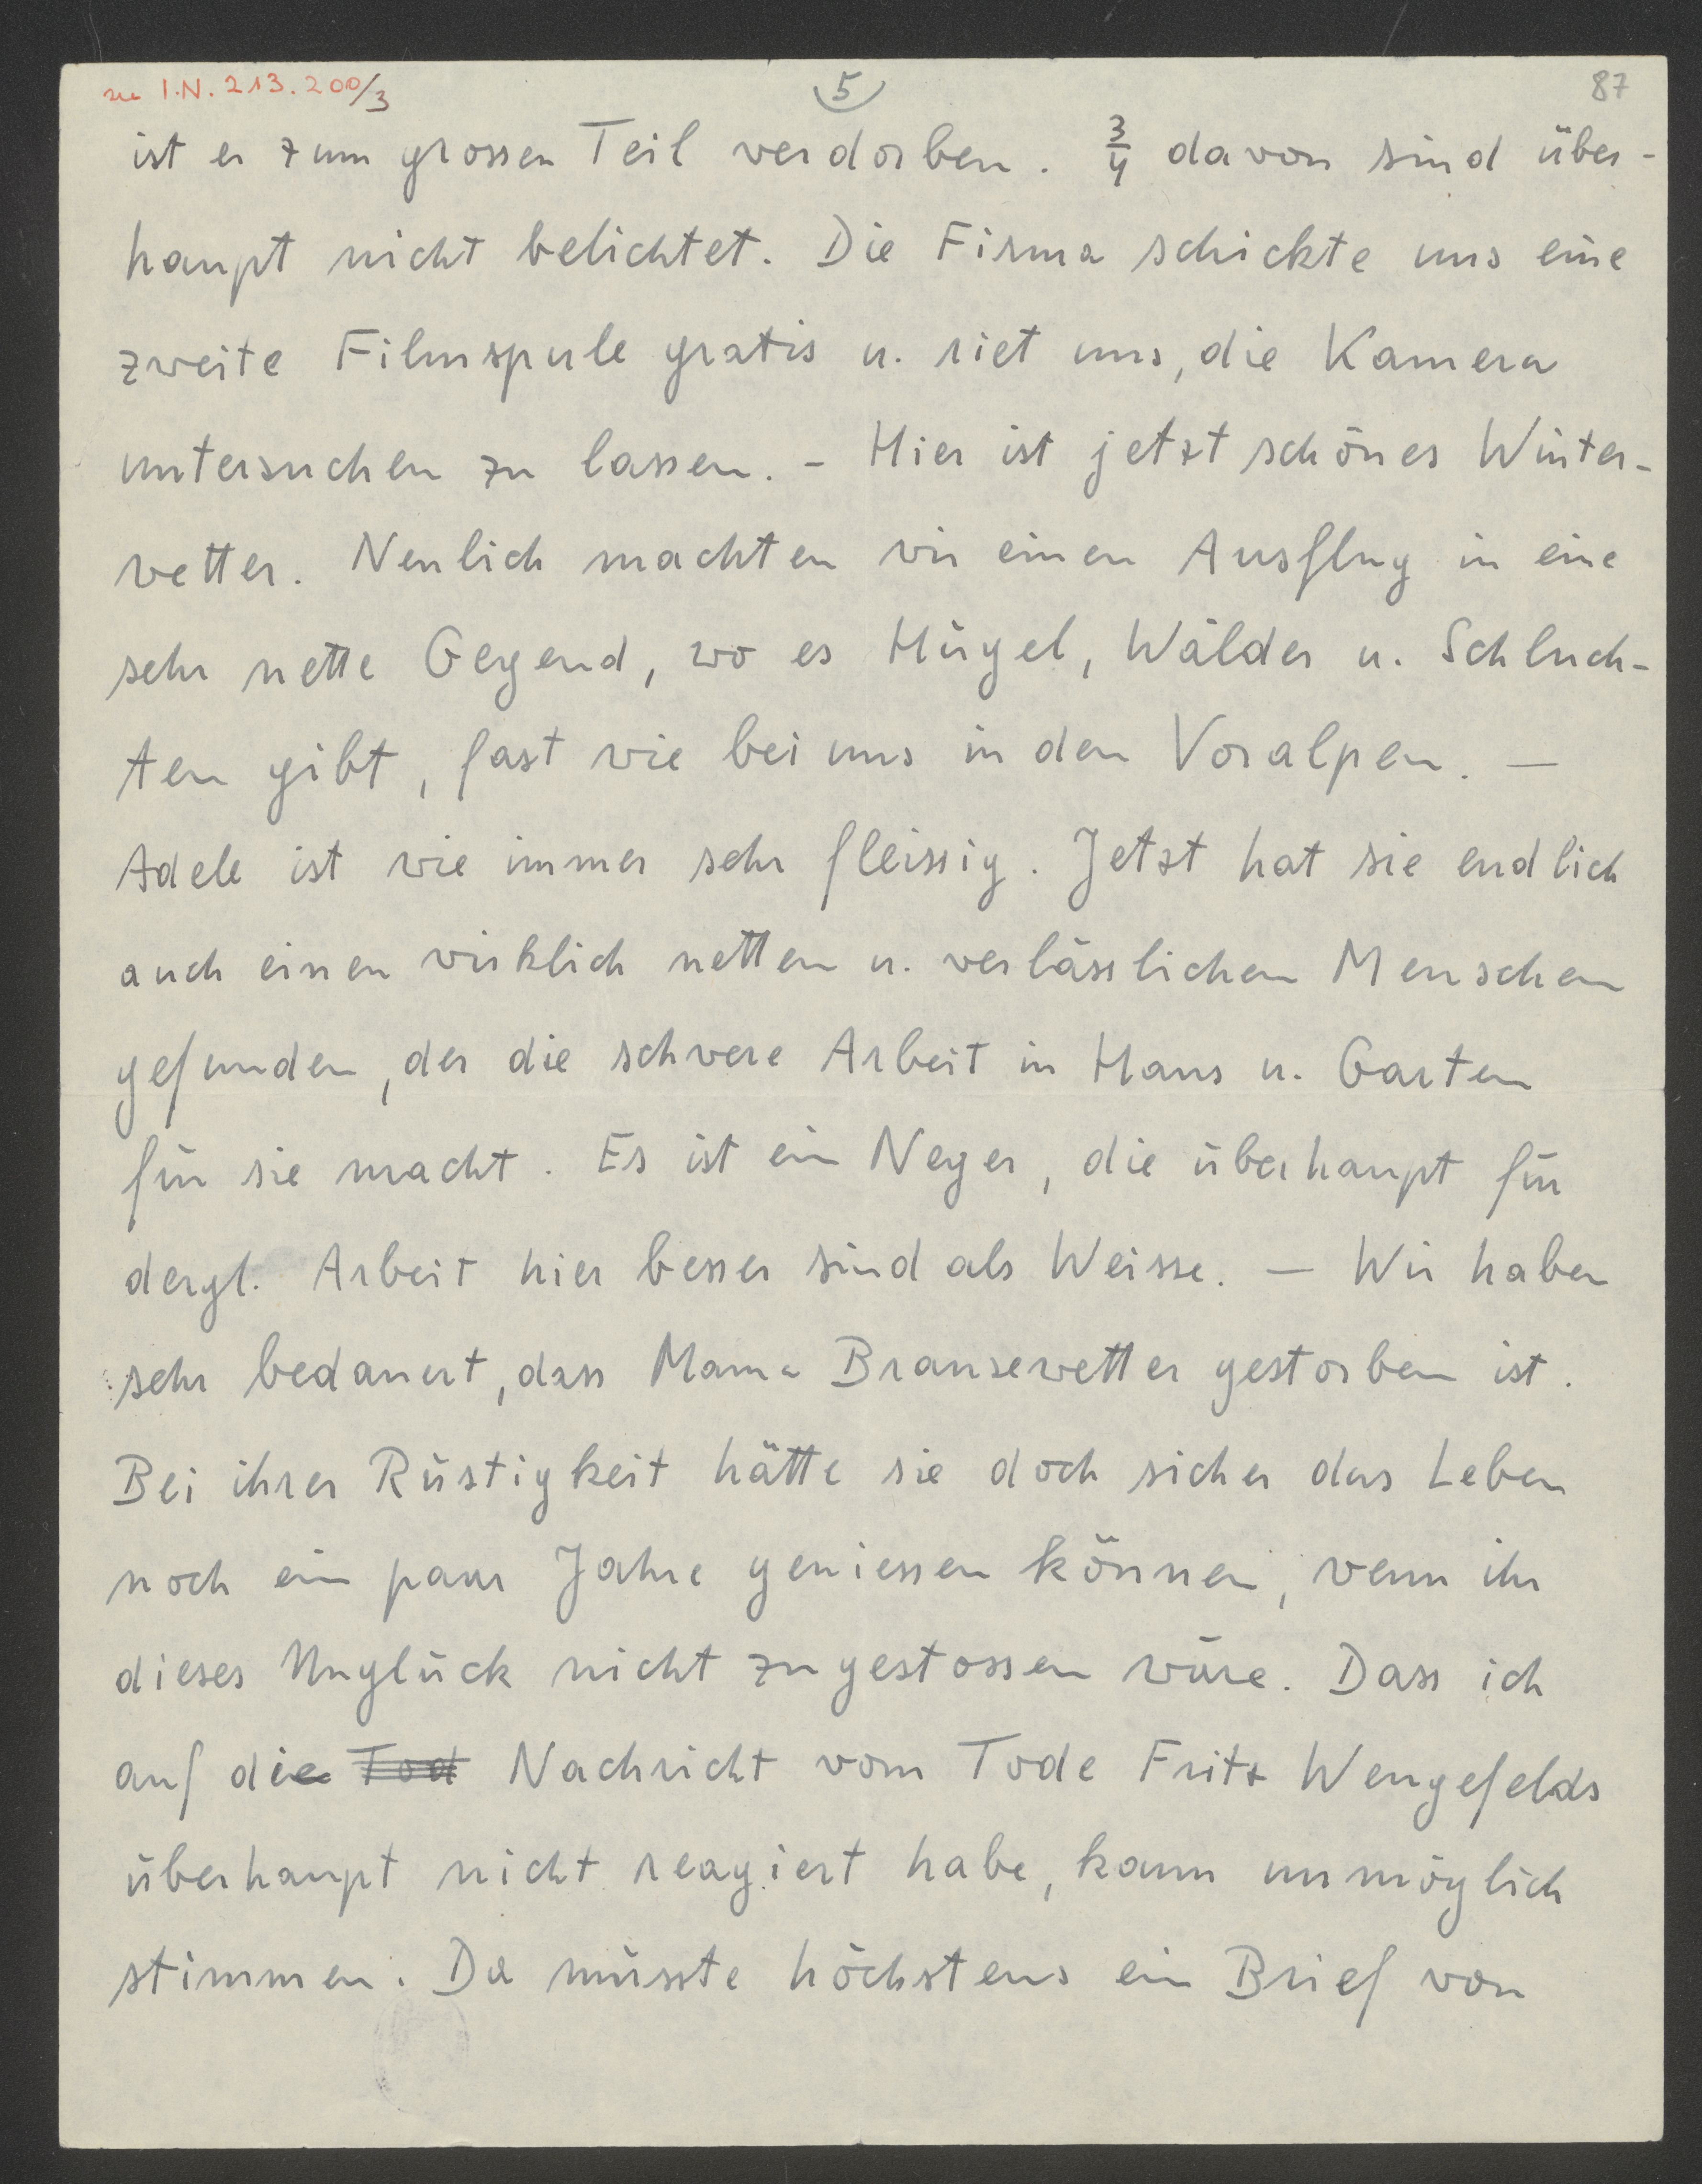 zu I.N. 213.200/3
5
87
ist er zum grossen Teil verdorben. 3/4 davon sind über-
haupt nicht belichtet. Die Firma schickte uns eine
zweite Filmspule gratis u. riet uns, die Kamera
untersuchen zu lassen. - Hier ist jetzt schönes Winter-
wetter. Neulich machten wir einen Ausflug in eine
sehr nette Gegend, wo es Hügel, Wälder u. Schluch-
ten gibt, fast wie bei uns in den Voralpen. —
Adele ist wie immer sehr fleissig. Jetzt hat sie endlich
auch einen wirklich netten u. verlässlichen Menschen
gefunden, der die schwere Arbeit in Haus u. Garten
für sie macht. Es ist ein Neger, die überhaupt für
dergl. Arbeit hier besser sind als Weisse. — Wir haben
sehr bedauert, dass Mama Brausewetter gestorben ist.
Bei ihrer Rüstigkeit hätte sie doch sicher das Leben
noch ein paar Jahre geniessen können, wenn ihr
dieses Unglück nicht zugestossen wäre. Dass ich
auf die Tod Nachricht vom Tode Fritz Wengefelds
überhaupt nicht reagiert habe, kann unmöglich
stimmen. Da müsste höchstens ein Brief von